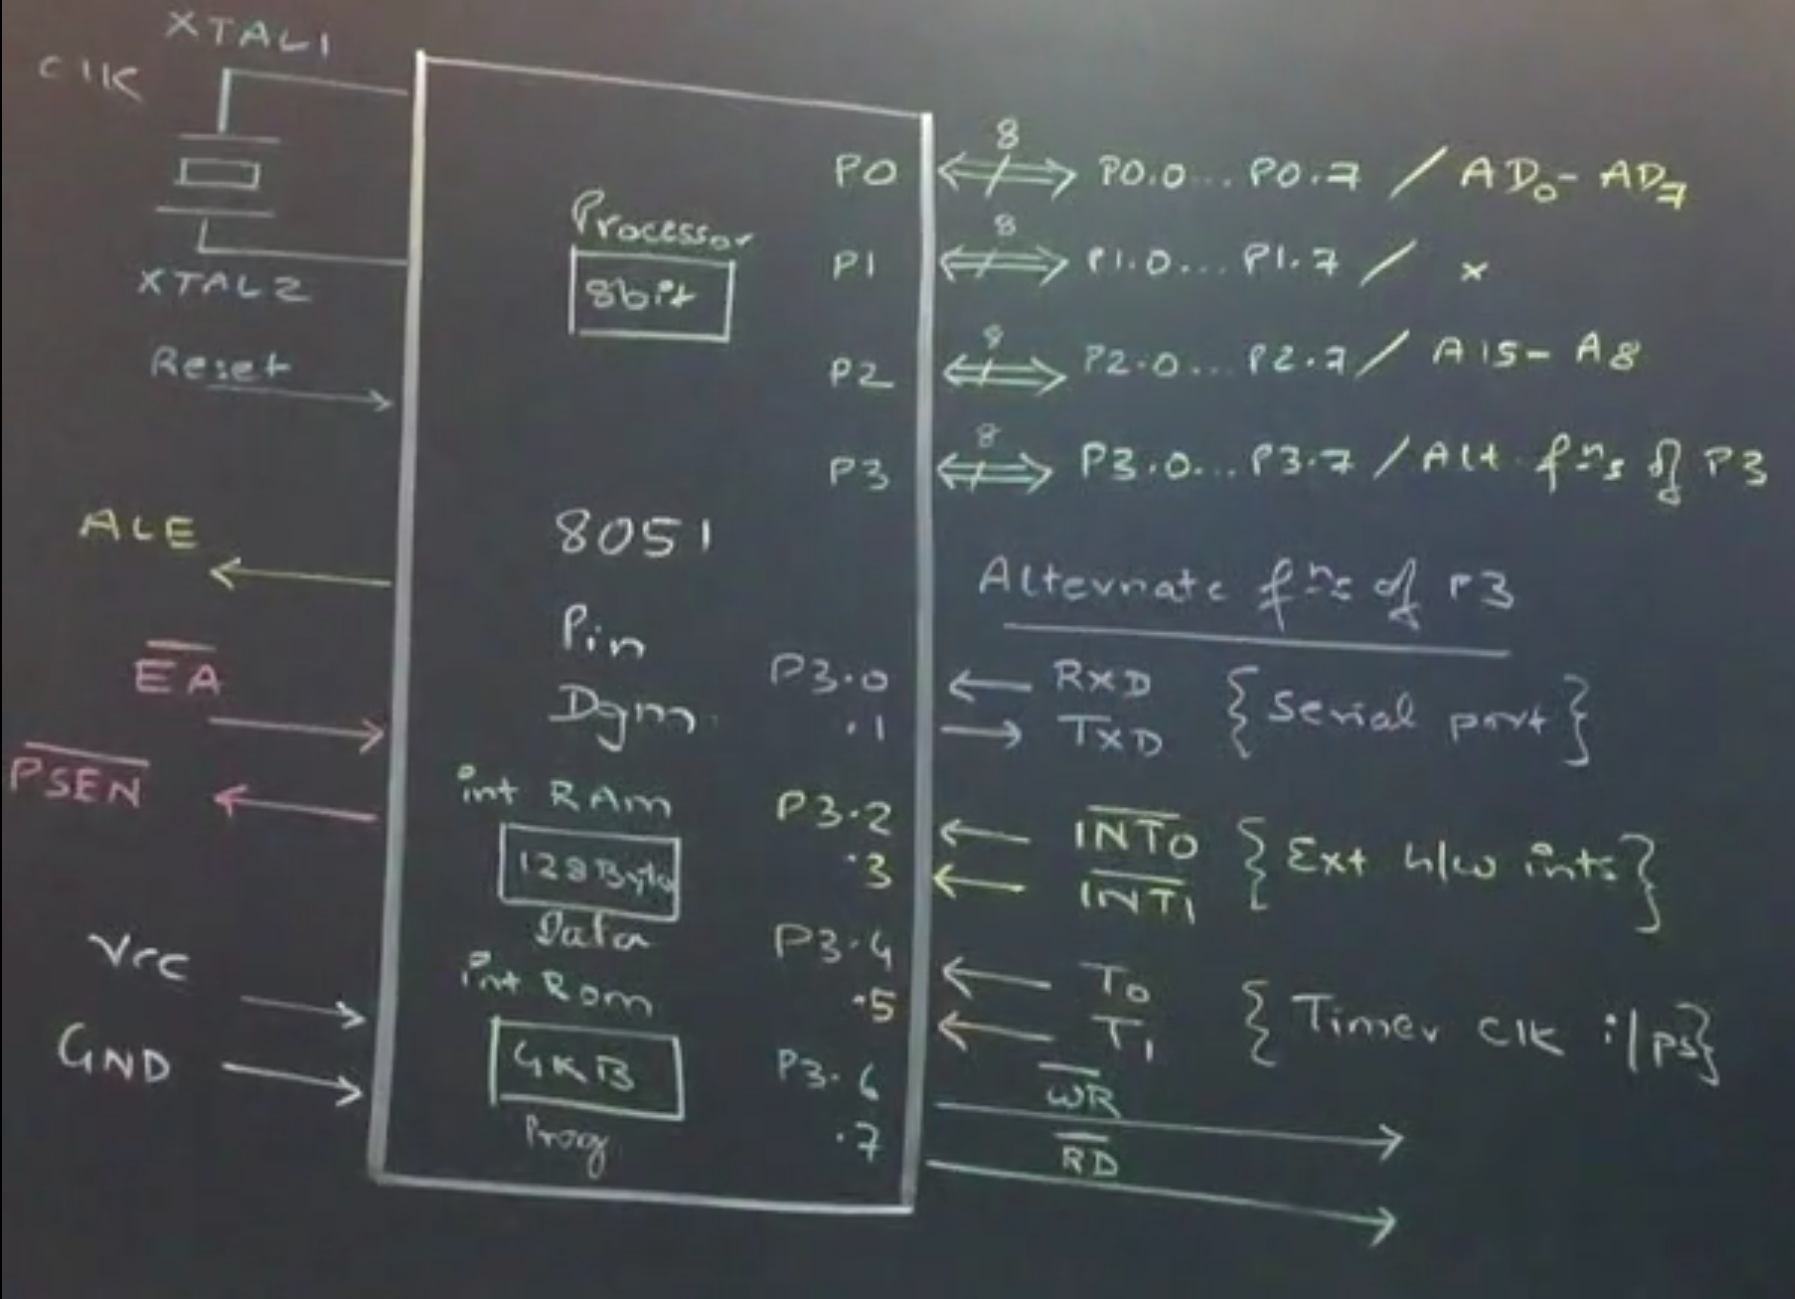 XTAL1
CLK
XTAL2
Reset
ALE
E̅A̅
P̅S̅E̅N̅
Vcc
GND
Processor
8bit
8051
Pin
Dgm.
int RAM
128Byte
Data
int Rom
4KB
Prog
P0 8 P0.0... P0.7 / AD0 - AD7
P1 8 P1.0... P1.7 / x
P2 8 P2.0... P2.7 / A15 - A8
P3 8 P3.0... P3.7 / Alt fns of P3
Alternate fns of P3
P3.0 RXD {Serial port}
.1 TXD
P3.2 I̅N̅T̅0̅ {Ext h/w ints}
.3 I̅N̅T̅1̅
P3.4 T0 {Timer Clk i/ps}
.5 T1
P3.6 W̅R̅
.7 R̅D̅